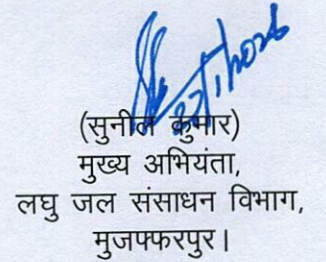 (सुनील कुमार)
मुख्य अभियंता,
लघु जल संसाधन विभाग,
मुजफ्फरपुर।